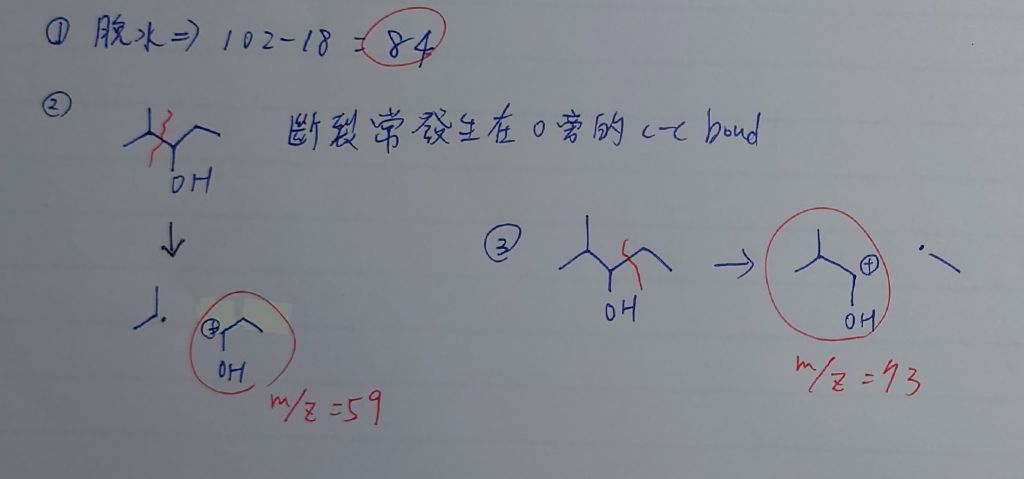 ① 脫水 => 102-18 = 84
② 斷裂常發生在O旁的 c-c bond
OH
③
OH
⊕
OH
⊕
OH
m/z = 59
m/z = 73